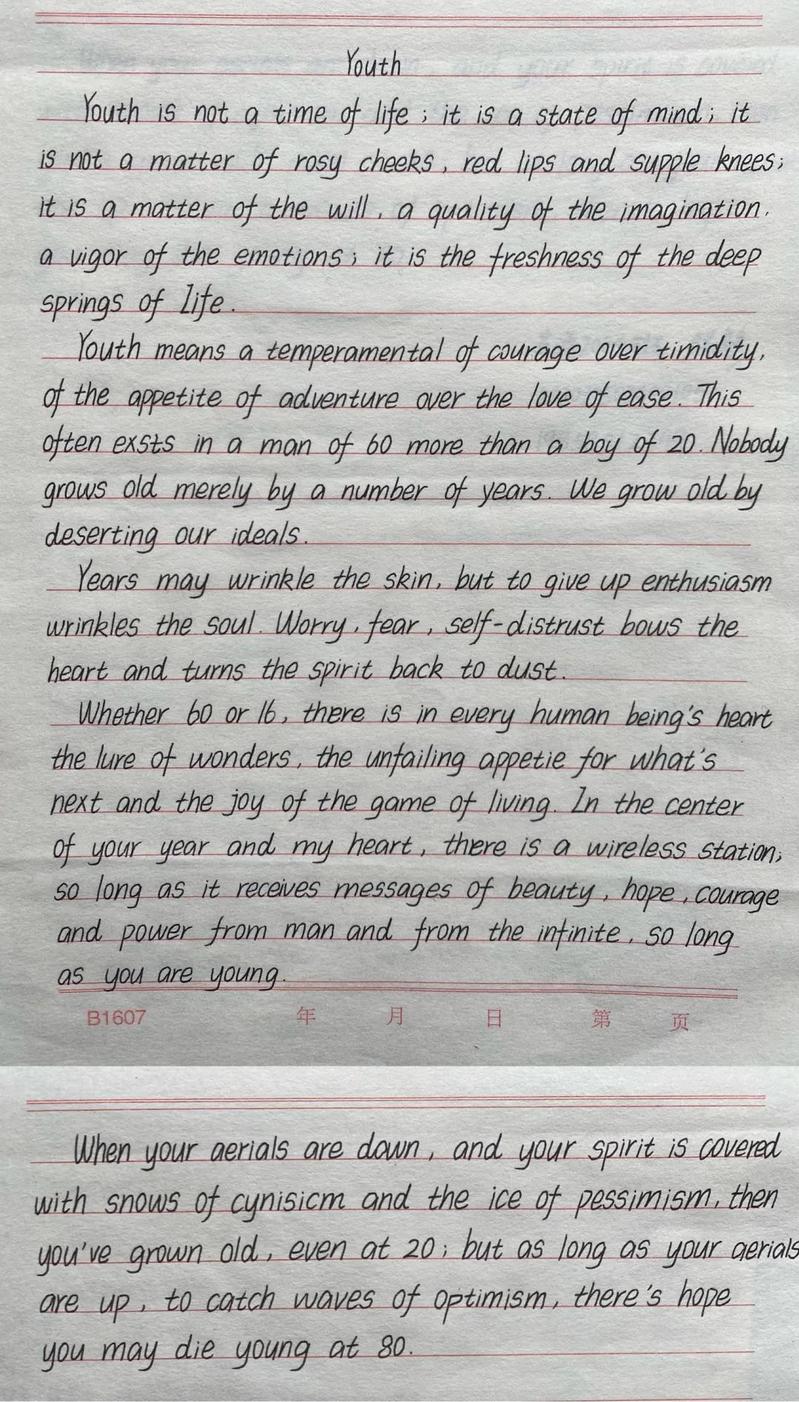 Youth
Youth is not a time of life; it is a state of mind; it
is not a matter of rosy cheeks, red lips and supple knees;
it is a matter of the will, a quality of the imagination.
a vigor of the emotions; it is the freshness of the deep
springs of life.
Youth means a temperamental of courage over timidity,
of the appetite of adventure over the love of ease. This
often exsts in a man of 60 more than a boy of 20. Nobody
grows old merely by a number of years. We grow old by
deserting our ideals.
Years may wrinkle the skin, but to give up enthusiasm
wrinkles the soul. Worry, fear, self-distrust bows the
heart and turns the spirit back to dust.
Whether 60 or 16, there is in every human being's heart
the lure of wonders, the unfailing appetie for what's
next and the joy of the game of living. In the center
of your year and my heart, there is a wireless station;
so long as it receives messages of beauty, hope, courage
and power from man and from the infinite, so long
as you are young.
B1607 年 月 日 第 页
When your aerials are down, and your spirit is covered
with snows of cynisicm and the ice of pessimism, then
you've grown old, even at 20; but as long as your aerials
are up, to catch waves of optimism, there's hope
you may die young at 80.